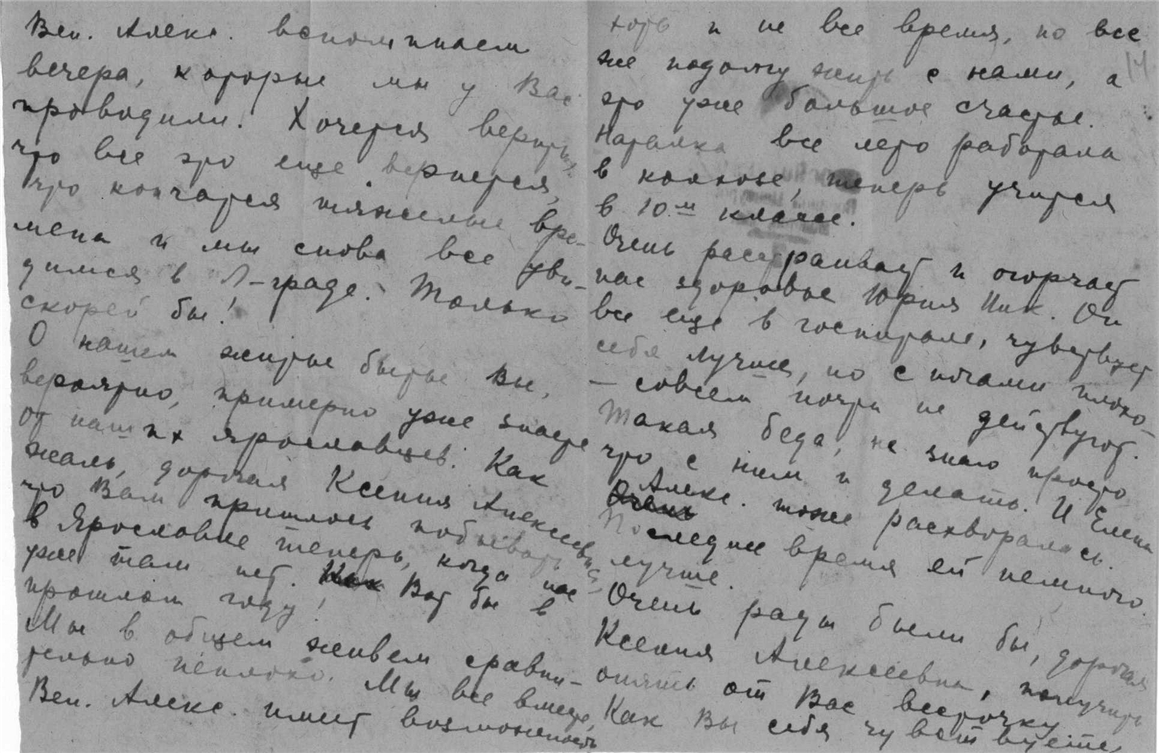 Вен. Алекс. вспоминаем
вечера, которые мы у Вас
проводили! Хочется верить,
что все это еще вернется,
что кончатся тяжелые вре-
мена и мы снова все уви-
димся в Л-граде. Только
скорей бы!
О нашем житье бытье Вы,
вероятно, примерно уже знаете
от наших ярославцев. Как
жаль, дорогая Ксения Алексеевна,
что Вам пришлось побывать
в Ярославле теперь, когда нас
уже там нет. Вот бы в
прошлом году!
Мы в общем живем сравни-
тельно неплохо. Мы все вместе,
Вен. Алекс. имеет возможность
хоть и не все время, но все
же подолгу жить с нами, а
это уже большое счастье.
Наталка все лето работала
в колхозе, теперь учится
в 10м классе.
Очень расстраивает и огорчает
нас здоровье Юрия Ник. Он
все еще в госпитале, чувствует
себя лучше, но с ногами плохо
– совсем почти не действуют.
Такая беда, не знаю просто
что с ним и делать. И Елена
Алекс. тоже расхворалась.
Последнее время ей немного
лучше.
Очень рады были бы, дорогая
Ксения Алексеевна, получить
опять от Вас весточку.
Как Вы себя чувствуете,
14